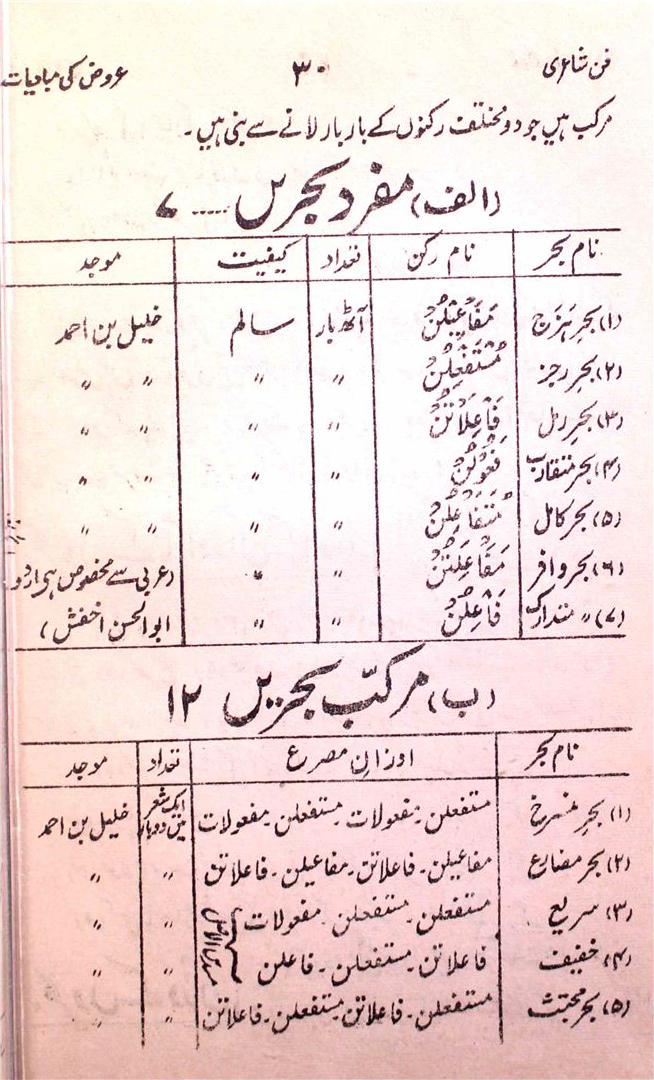 فن شاعری ۳۰ عروض کی مبادیات
مرکب ہیں جو دو مختلف رکنوں کے بار بار لانے سے بنی ہیں۔
(الف) مفرد بحریں ..... ۷
نام بحر نام رکن تعداد کیفیت موجد
(۱) بحر ہزج مَفَاعِیْلُنْ آٹھ بار سالم خلیل بن احمد
(۲) بحر رجز مُسْتَفْعِلُنْ " " " "
(۳) بحر رمل فَاعِلَاتُنْ " " " "
(۴) بحر متقارب فَعُوْلُنْ " " " "
(۵) بحر کامل مُتَفَاعِلُنْ " " " "
(۶) بحر وافر مَفَاعِلَتُنْ " " (عربی سے مخصوص ہی اردو
(۷) " متدارک فَاعِلُنْ " " ابوالحسن اخفش)
(ب) مرکب بحریں ۱۲
نام بحر اوزان مصرع تعداد موجد
(۱) بحر منسرح مستفعلن۔ مفعولات۔ مستفعلن۔ مفعولات ایک شعر میں دو بار خلیل بن احمد
(۲) بحر مضارع مفاعیلن۔ فاعلاتن۔ مفاعیلن۔ فاعلاتن " "
(۳) سریع مستفعلن۔ مستفعلن۔ مفعولات " "
(۴) خفیف فاعلاتن۔ مستفعلن۔ فاعلن مسدس الاصل " "
(۵) بحر مجتث مستفعلن۔ فاعلاتن۔ مستفعلن۔ فاعلاتن " "